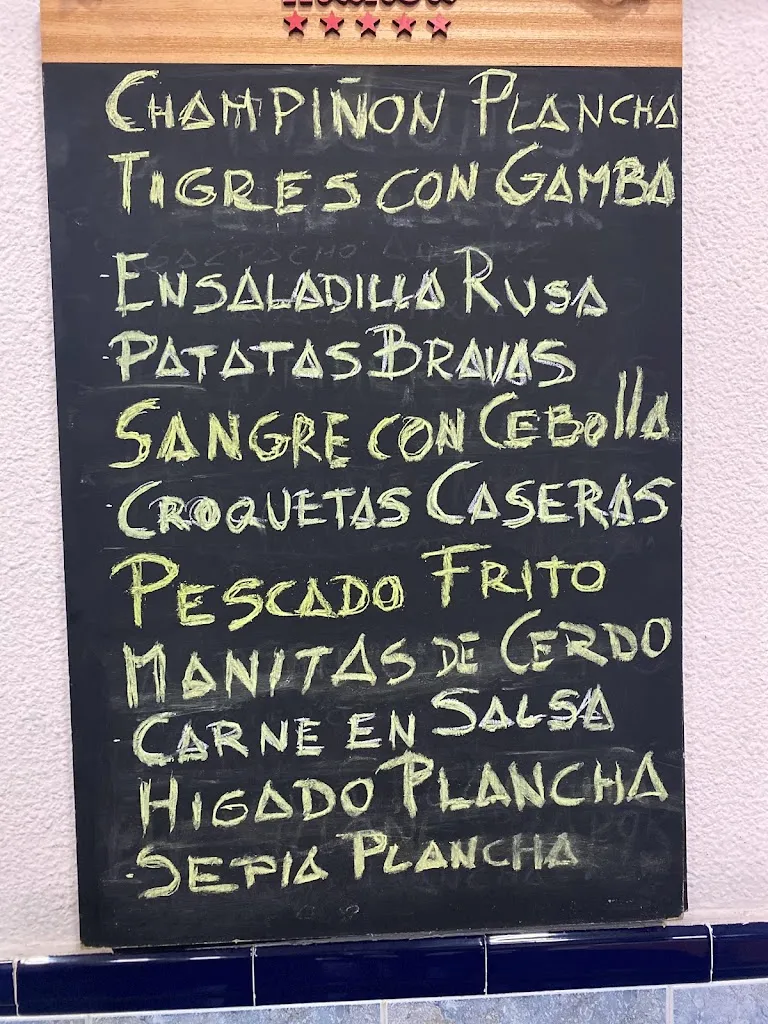 CHAMPIÑON PLANCHA
TIGRES CON GAMBA
-ENSALADILLA RUSA
-PATATAS BRAVAS
SANGRE CON CEBOllA
-CROQUETAS CASERAS
PESCADO FRITO
MANITAS DE CERDO
-CARNE EN SALSA
HIGADO PLANCHA
-SEPIA PLANCHA